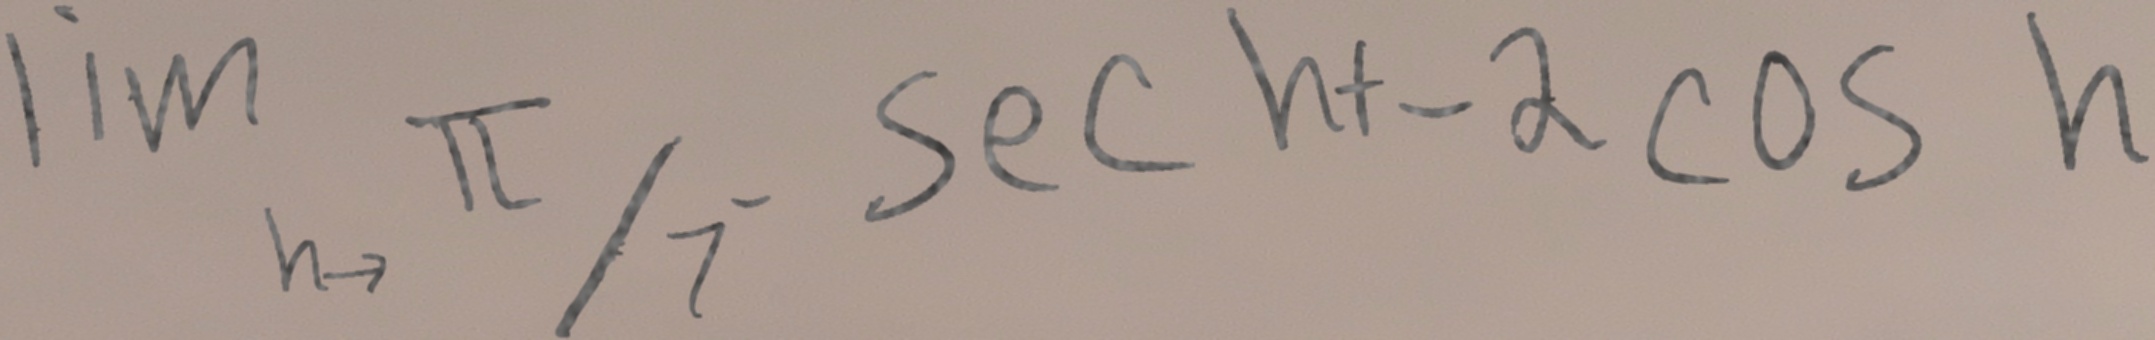 lim h→ π/7⁻ sec h+-2 cos h